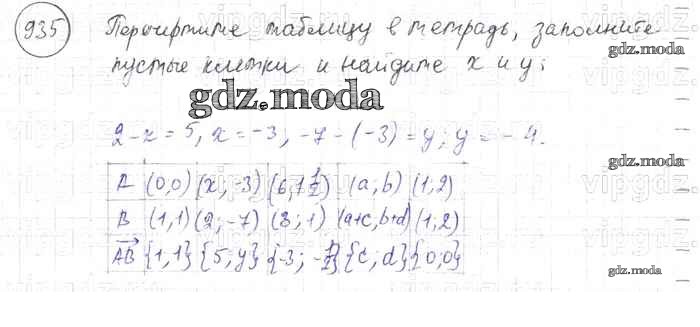 935 Перечертите таблицу в тетрадь, заполните
gdz.moda
пустые клетки и найдите x и y:
gdz.moda
2-x=5, x=-3; -7-(-3)=y; y=-4.
gdz.moda
A (0,0) (x;-3) (6,1 1/2) (a,b) (1,2)
B (1,1) (2;-7) (3;1) (a+c,b+d) (1,2)
gdz.moda
AB {1,1} {5;y} {-3;-1/2} {c;d} {0;0}